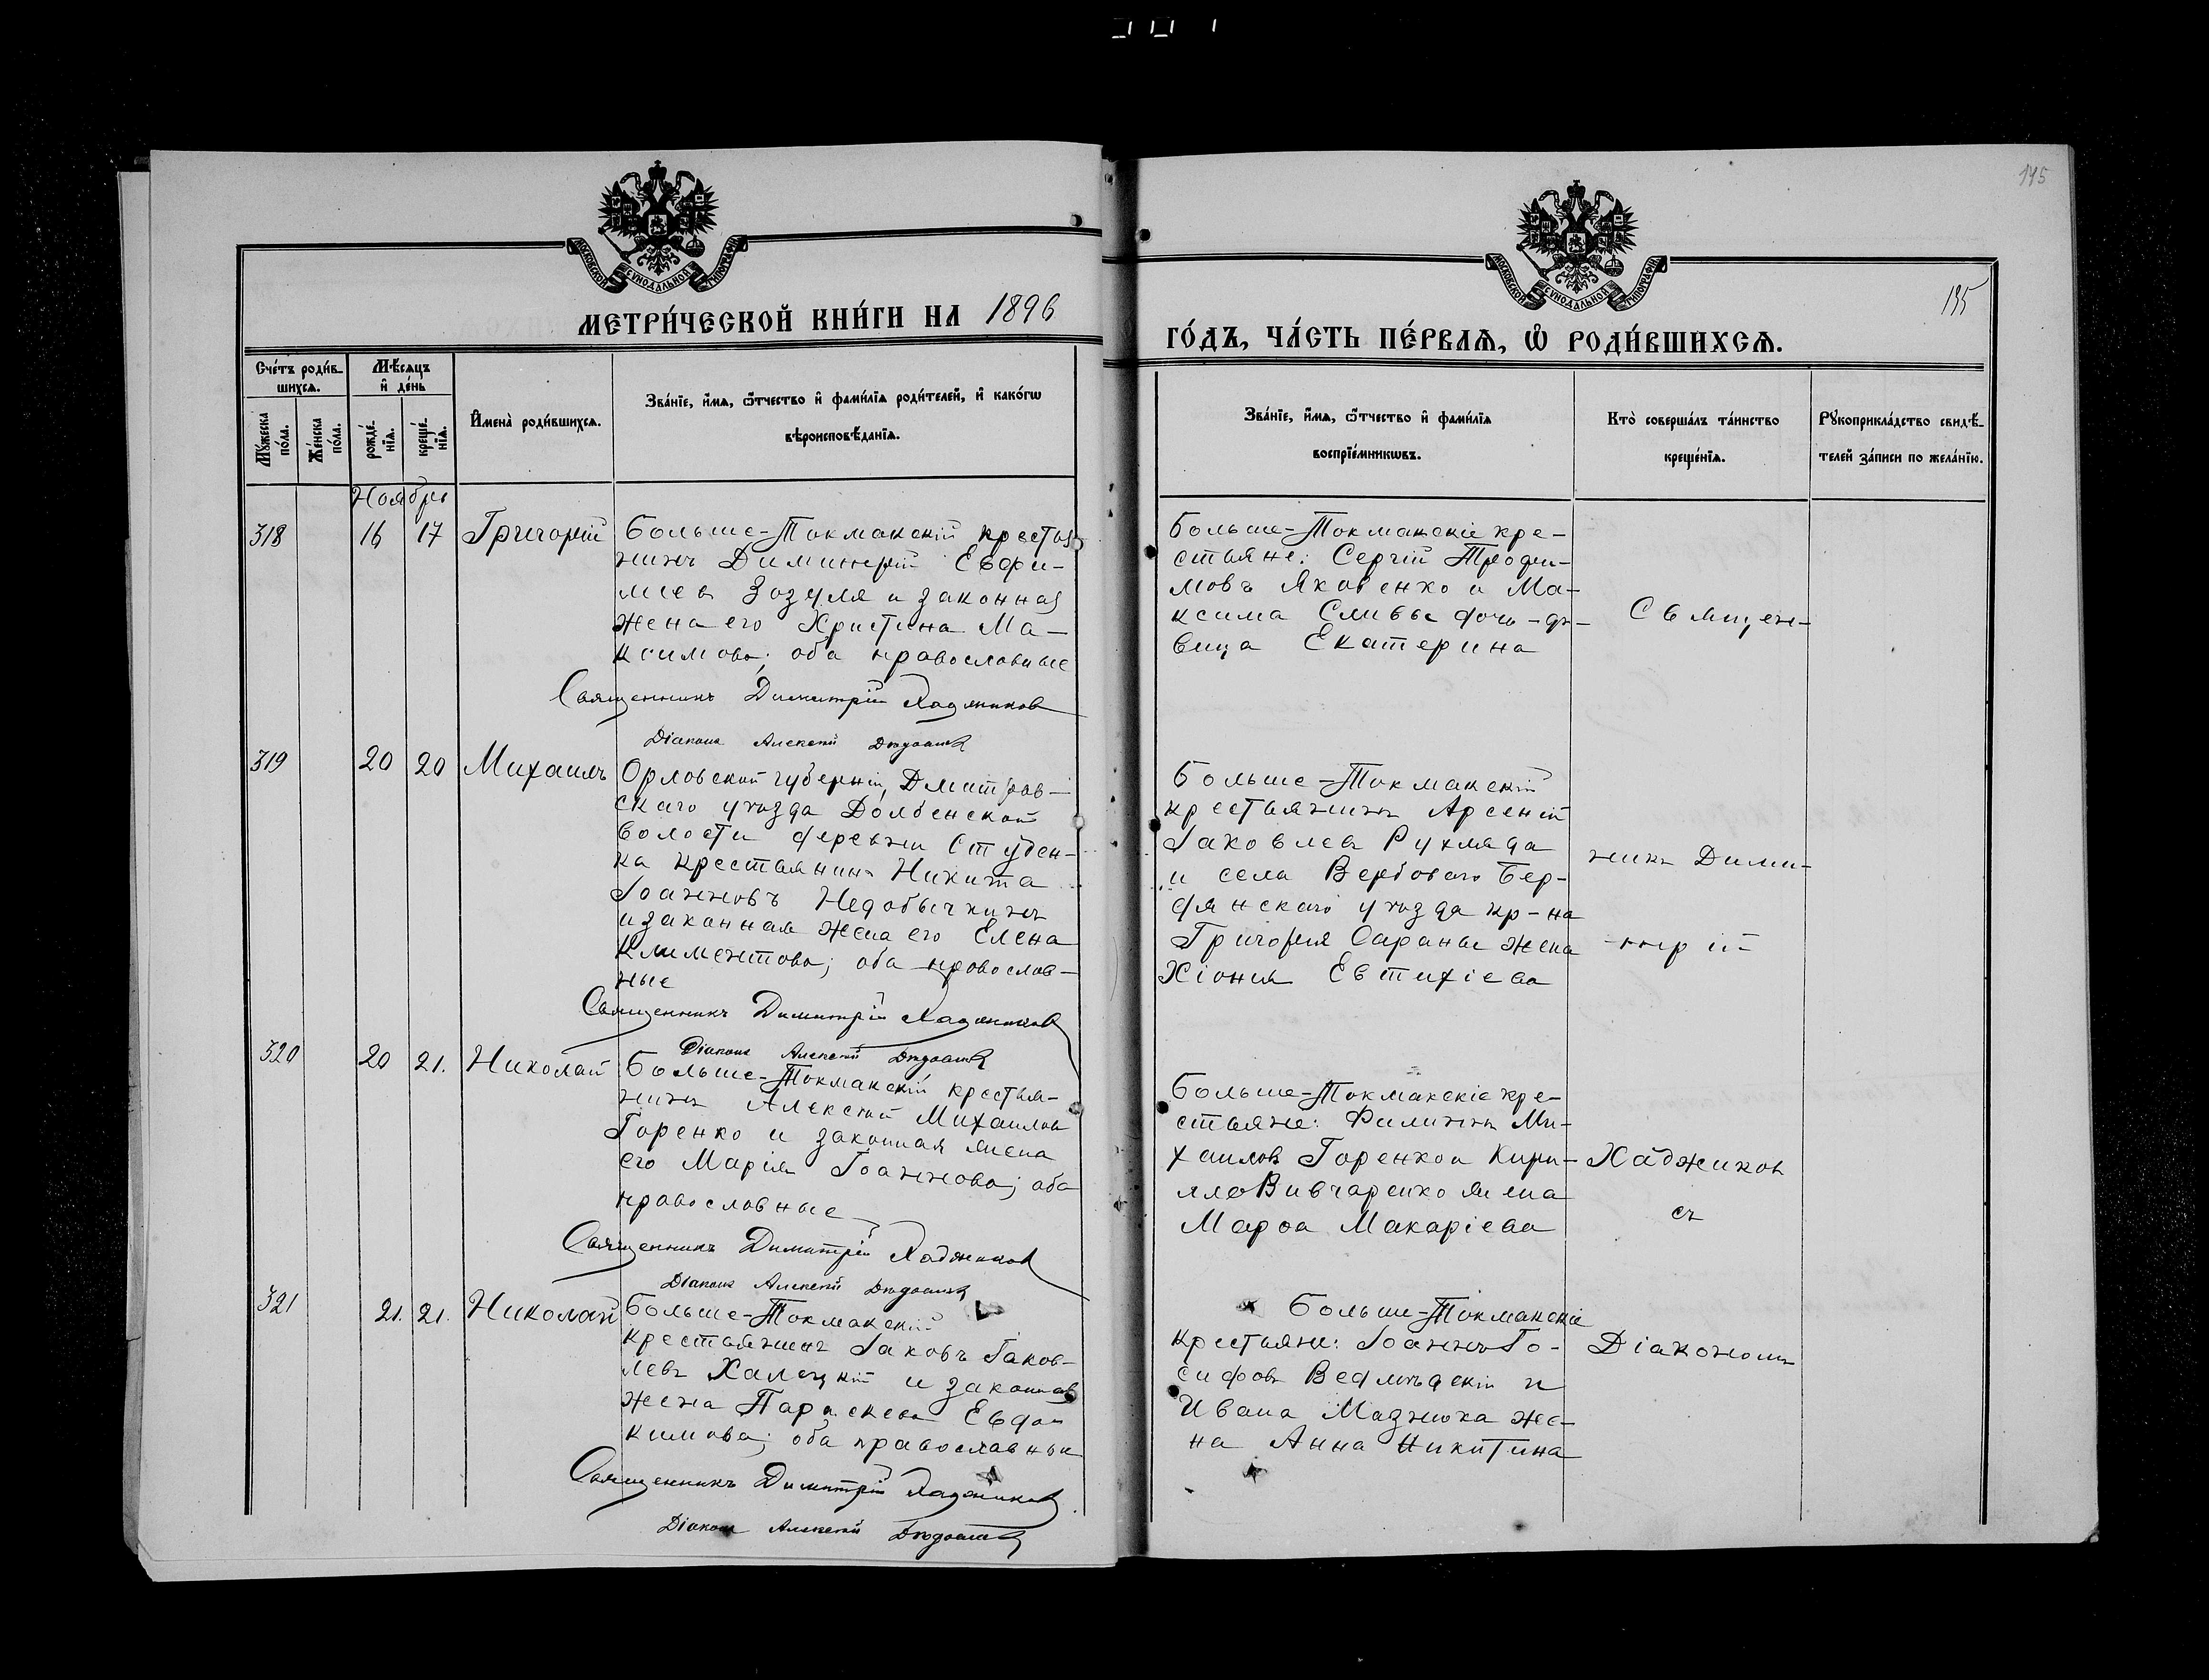 145
МОСКОВСКОЙ СУНОДАЛЬНОЙ ТИПОГРАФІИ
МОСКОВСКОЙ СУНОДАЛЬНОЙ ТИПОГРАФІИ
135
МЕТРИ́ЧЕСКОЙ КНИ́ГИ НА 1896
ГО́ДЪ, ЧА́СТЬ ПЕ́РВАѦ, Ѡ РОДИ́ВШИХСѦ.
Сче́тъ роди́в-
шихсѧ.
Мꙋжеска
по́ла.
Же́нска
по́ла.
Мѣ́сѧцъ
и҆ де́нь
рожде́-
нїѧ.
креще́-
нїѧ.
И҆мена̀ роди́вшихсѧ.
Зва́нїе, и҆́мѧ, ѻ҆́тчество и҆ фами́лїѧ роди́телей, и҆ како́гѡ
вѣроисповѣ́данїѧ.
Зва́нїе, и҆́мѧ, ѻ҆́тчество и҆ фами́лїѧ
воспрїе́мникѡвъ.
Кто̀ соверша́лъ та́инство
креще́нїѧ.
Рꙋкоприкла́дство свидѣ́-
телей за́писи по жела́нїю.
Ноябрь
318 16 17 Григорій
Больше-Токмакскій крестья
нинъ Димитрій Евфи-
міев Зозуля и законная
жена его Христина Ма-
ксимова; оба православные
Священникъ Димитрій Хаджиков
Діаконъ Алексѣй
Больше-Токмакскіе кре-
стьяне: Сергій Трофи-
мовъ Яковенко и Ма-
ксима Сливы дочь-дѣ-
вица Екатерина
Священ-
319 20 20 Михаилъ
Орловской губерніи, Дмитров-
скаго уѣзда Долбенской
волости деревни Студен-
ка крестьянинъ Никита
Іоанновъ Недобычкинъ
и законная жена его Елена
Климентова; оба православ-
ные
Священникъ Димитрій Хаджиков
Діаконъ Алексѣй
Больше-Токмакскій
крестьянинъ Арсеній
Іаковлев Рухмада
и села Вербоваго Бер-
дянскаго уѣзда кр-на
Григорія Сараны жена
Хіонія Евтихіева
никъ Дими-
трій
320 20 21. Николай
Больше-Токмакскій крестья-
нинъ Алексѣй Михаилов
Горенко и законная жена
его Марія Іоаннова; оба
православные
Священникъ Димитрій Хаджиков
Діаконъ Алексѣй
Больше-Токмакскіе кре-
стьяне: Филиппъ Ми-
хаилов Горенко и Кири-
лла Вивчаренко жена
Марѳа Макаріева
Хаджиков
съ
321 21. 21. Николай
Больше-Токмакскій
крестьянинъ Іаковъ Іаков-
левъ Халецкій и законная
жена Параскева Евдо
кимова; оба православные
Священникъ Димитрій Хаджиков
Діаконъ Алексѣй
Больше-Токмакскіе
крестьяне: Іоаннъ Іо-
сифовъ Ведмѣдскій и
Ивана Мазнюка же-
на Анна Никитина
Діакономъ